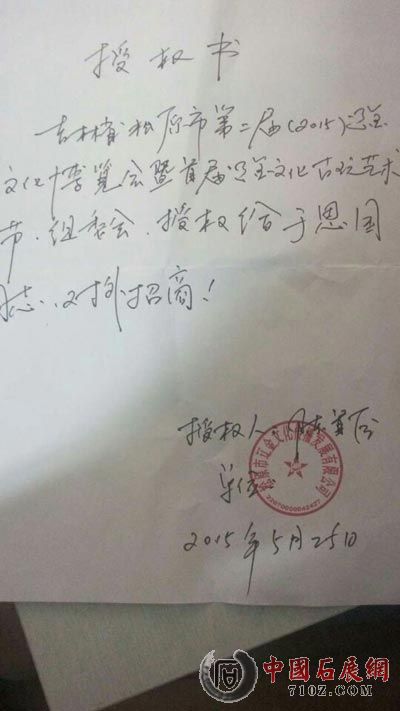 授权书
吉林省松原市第二届(2015)辽金
文化博览会暨首届辽金文化古玩艺术
节.组委会.授权给于恩国
同志.对外招商!
授权人:
单位
松原市辽金文化传播发展有限公司
2015年5月25日
中國石展網
710Z.COM